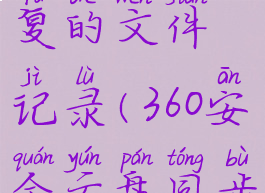 复的文件
jì lù ān
记录(360安
quán yún pán tóng bù
全云盘同步